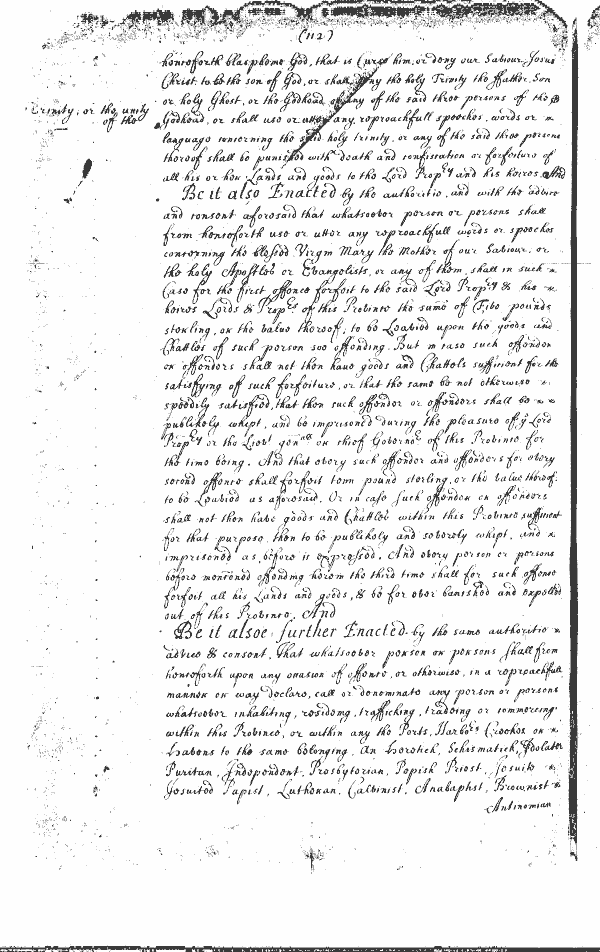 (112)
henceforth blaspheme God, that is Curse him, or deny our Saviour Jesus
Christ to be the son of God, or shall deny the holy Trinity the ffather, Son
or holy Ghost, or the Godhead of any of the said three persons of the
Trinity, or the unity
of the
Godhead, or shall use or utter any reproachfull speeches, words or
language concerning the said holy trinity, or any of the said three persons
thereof shall be punished with death and confiscation or forfeiture of
all his or her Lands and goods to the Lord Propry and his heires, And
Be it also Enacted by the authoritie, and with the advice
and consent aforesaid that whatsoever person or persons shall
from henceforth use or utter any reproachfull words or speeches
concerning the blessed Virgin Mary the Mother of our Saviour, or
the holy Apostles or Evangelists, or any of them, shall in such
Case for the first offence forfeit to the said Lord Propry & his
heires Lords & Props of this Province the sume of ffive pounds
sterling, or the value thereof, to be Leavied upon the goods and
Chattles of such person soe offending. But in case such offender
or offenders shall not then have goods and Chattels sufficient for the
satisfying of such forfeiture, or that the same be not otherwise
speedily satisfied, that then such offender or offenders shall be
publickely whipt, and be imprisoned during the pleasure of ye Lord
Propry or the Lieut genall or chief Governor of this Province for
the time being. And that every such offender and offenders for every
second offence shall forfeit tenn pound sterling, or the value thereof
to be Leavied as aforesaid, Or in case such offender or offenders
shall not then have goods and Chattles within this Province sufficient
for that purpose, then to be publikely and severely whipt, and
imprisoned as before is expressed. And every person or persons
before mentioned offending herein the third time shall for such offence
forfeit all his Lands and goods, & be for ever banished and expelled
out of this Province. And
Be it alsoe further Enacted by the same authoritie
advice & consent, That whatsoever person or persons shall from
henceforth upon any occasion of offence, or otherwise, in a reproachfull
manner or way declare, call or denominate any person or persons
whatsoever inhabiting, residing, trafficking, tradeing or commercing
within this Province, or within any the Ports, Harbors Creekes or
Havens to the same belonging, An Heretick, Schismatick, Idolater
Puritan, Independent, Presbyterian, Popish Priest, Jesuite
Jesuited Papist, Lutheran, Calvinist, Anabaptist, Brownist
Antinomian